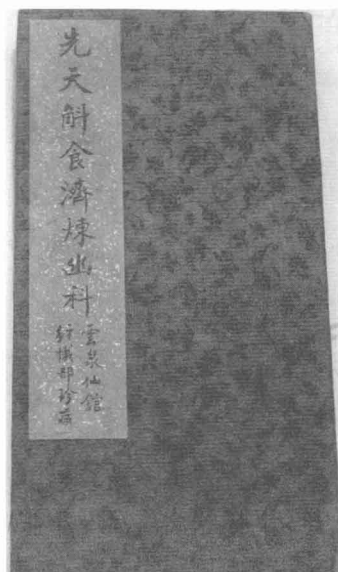 先天斛食濟煉幽科
雲泉仙館
經懺部珍藏